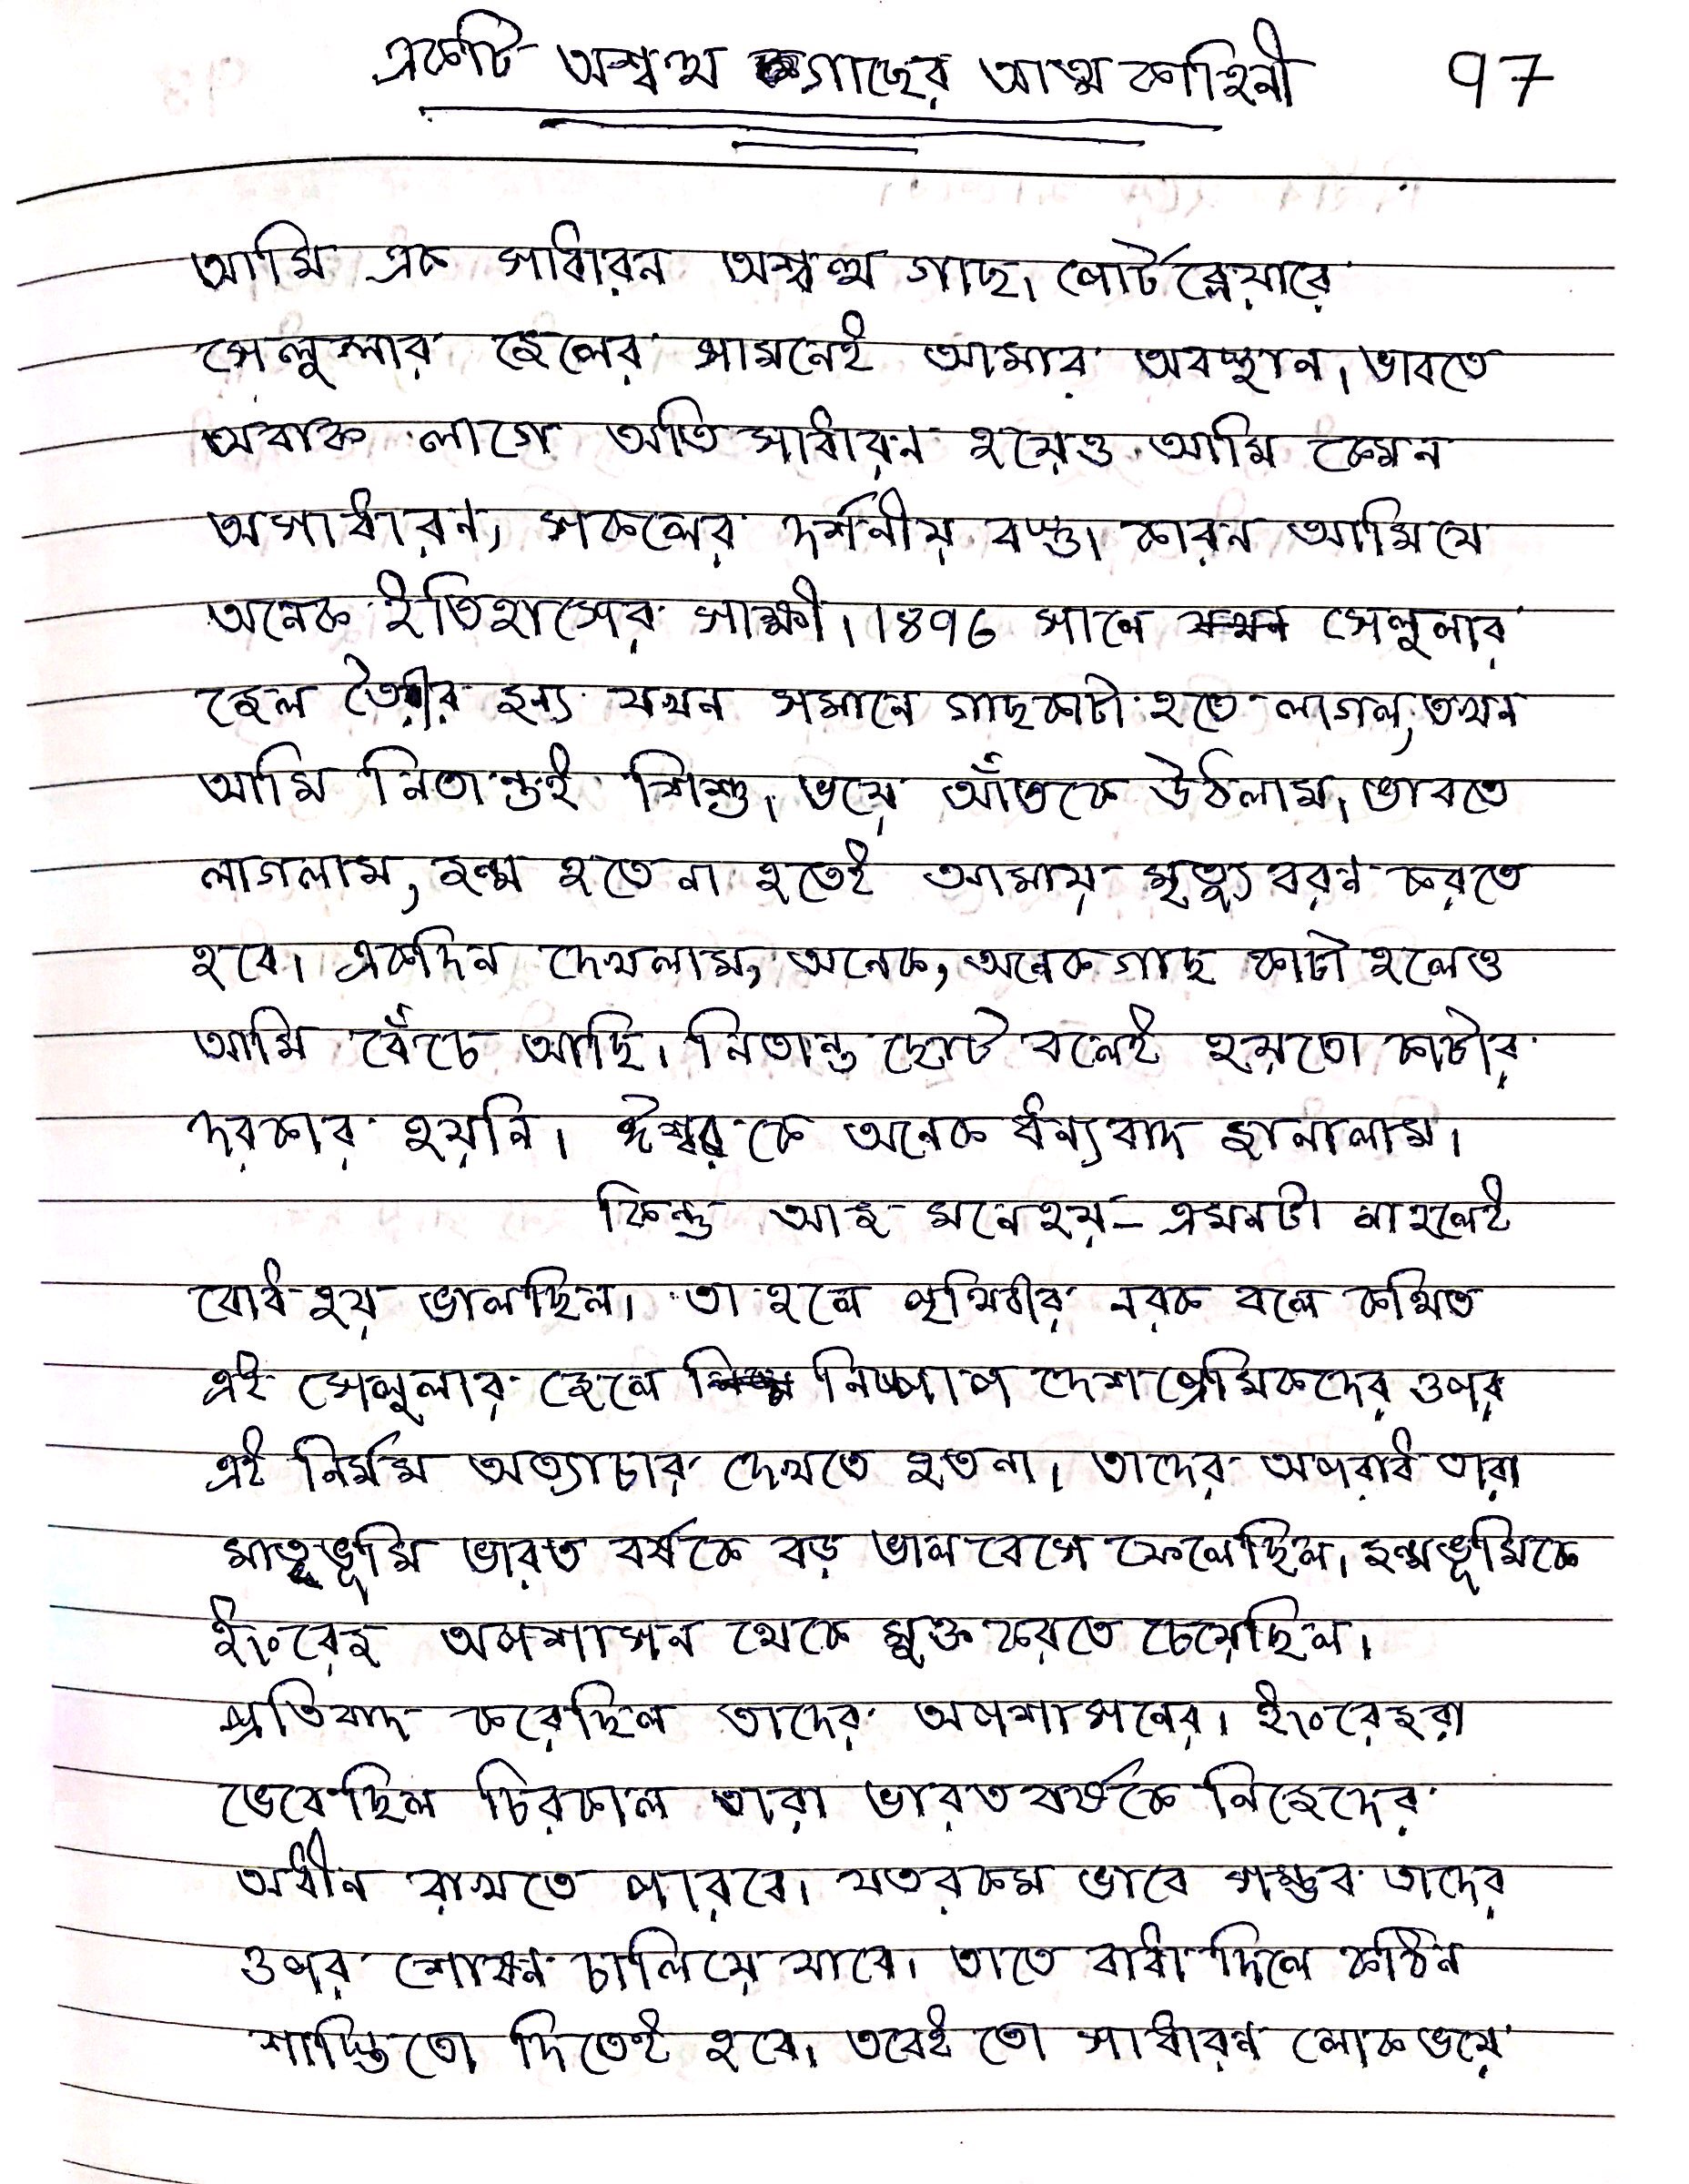 একটি অশ্বত্থ গাছের আত্ম কাহিনী 97
আমি এক সাধারন অশ্বত্থ গাছ। পোর্টব্লেয়ারে
সেলুলার জেলের সামনেই আমার অবস্থান। ভাবতে
অবাক লাগে অতি সাধারন হয়েও আমি কেমন
অসাধারন, সকলের দর্শনীয় বস্তু। কারন আমি যে
অনেক ইতিহাসের সাক্ষী। 1896 সালে সেলুলার
জেল তৈরীর জন্য যখন সমানে গাছ কাটা হতে লাগল, তখন
আমি নিতান্তই শিশু। ভয়ে আঁতকে উঠলাম। ভাবতে
লাগলাম, জন্ম হতে না হতেই আমায় মৃত্যু বরন করতে
হবে। একদিন দেখলাম, অনেক, অনেক গাছ কাটা হলেও
আমি বেঁচে আছি। নিতান্ত ছোট বলেই হয়তো কাটার
দরকার হয়নি। ঈশ্বরকে অনেক ধন্যবাদ জানালাম।
কিন্তু আজ মনে হয় – এমনটা না হলেই
বোধ হয় ভাল ছিল। তা হলে পৃথিবীর নরক বলে কথিত
এই সেলুলার জেলে নিষ্পাপ দেশপ্রেমিকদের ওপর
এই নির্মম অত্যাচার দেখতে হত না। তাদের অপরাধ তারা
মাতৃভূমি ভারত বর্ষকে বড় ভাল বেসে ফেলেছিল। জন্মভূমিকে
ইংরেজ অপশাসন থেকে মুক্ত করতে চেয়েছিল।
প্রতিবাদ করেছিল তাদের অপশাসনের। ইংরেজরা
ভেবেছিল চিরকাল তারা ভারতবর্ষকে নিজেদের
অধীন রাখতে পারবে। যতরকম ভাবে সম্ভব তাদের
ওপর শোষন চালিয়ে যাবে। তাতে বাধা দিলে কঠিন
শাস্তি তো দিতেই হবে। তবেই তো সাধারন লোক ভয়ে